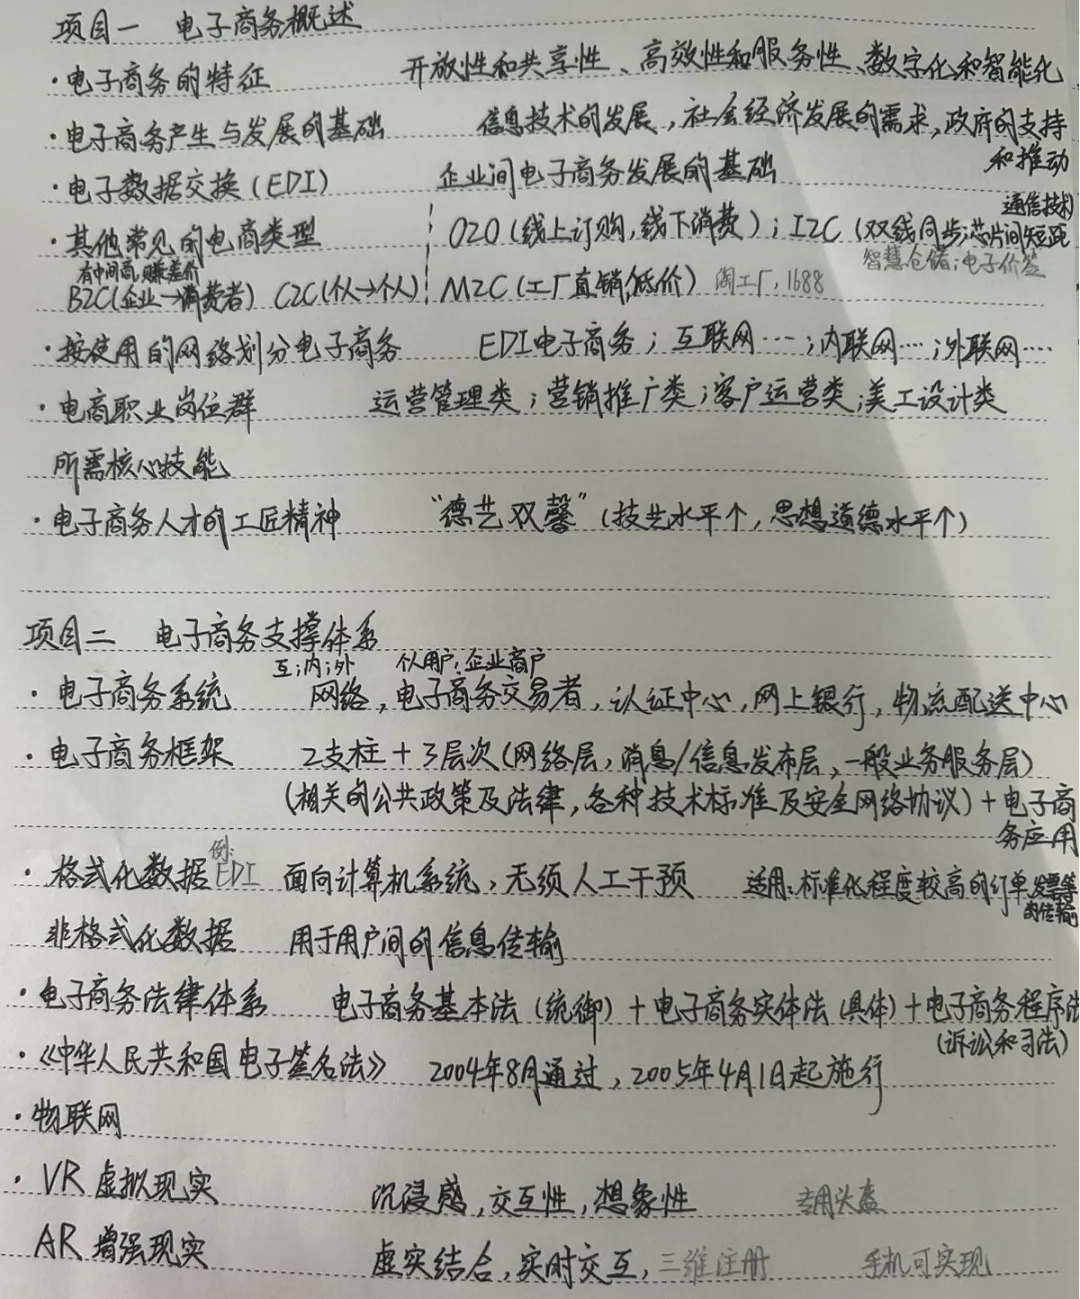 项目一 电子商务概述
·电子商务的特征 开放性和共享性、高效性和服务性、数字化和智能化
·电子商务产生与发展的基础 信息技术的发展,社会经济发展的需求,政府的支持
和推动
·电子数据交换(EDI) 企业间电子商务发展的基础
通信技术
·其他常见的电商类型 O2O(线上订购,线下消费);I2C(双线同步;芯片间短距
智慧仓储;电子价签
有中间商,赚差价
B2C(企业→消费者) C2C(个人→个人) M2C(工厂直销,低价) 淘工厂,1688
·按使用的网络划分电子商务 EDI电子商务;互联网…;内联网…;外联网…
·电商职业岗位群 运营管理类;营销推广类;客户运营类;美工设计类
所需核心技能
·电子商务人才的工匠精神 “德艺双馨”(技艺水平个,思想道德水平个)
项目二 电子商务支撑体系
互;内;外 个人用户;企业商户
·电子商务系统 网络,电子商务交易者,认证中心,网上银行,物流配送中心
·电子商务框架 2支柱+3层次(网络层,消息/信息发布层,一般业务服务层)
(相关的公共政策及法律,各种技术标准及安全网络协议)+电子商
务应用
例:
·格式化数据 EDI 面向计算机系统,无须人工干预 适用:标准化程度较高的订单发票等
的传输
非格式化数据 用于用户间的信息传输
·电子商务法律体系 电子商务基本法(统御)+电子商务实体法(具体)+电子商务程序法
(诉讼和司法)
·《中华人民共和国电子签名法》 2004年8月通过,2005年4月1日起施行
·物联网
·VR 虚拟现实 沉浸感,交互性,想象性 专用头盔
AR 增强现实 虚实结合,实时交互,三维注册 手机可实现